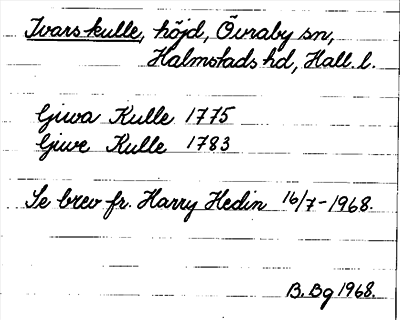 Ivars kulle, höjd, Övraby sn,
Halmstads hd, Hall. l.
Giwa Kulle 1775
Giwe Kulle 1783
Se brev fr. Harry Hedin 16/7-1968.
B. Bg 1968.